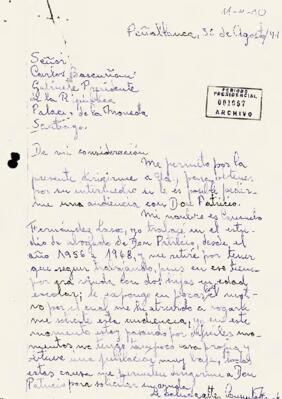 11-4-10
Peñablanca, 30 de Agosto/91
Señor:
Carlos Bascuñan:
Gabinete Presidente
de la República
Palacio de la Moneda
Santiago.
PERIODO
PRESIDENCIAL
001067
ARCHIVO
De mi consideración
Me permito por la
presente dirigirme a Ud, para obtener
por su intermedio si le es posible pedir
me una audiencia con Don Patricio.
Mi nombre es
Fernández Lazo, yo trabajé en el estu-
dio de abogado de Don Patricio, desde el
año 1956 a 1968, y me retiré por tener
que seguir trabajando, pues en ese tiem-
po era viuda con dos hijas en edad
escolar; le expongo en pocas el moti-
vo por el cual me he atrevido a rogar
me solicite esta audiencia; yo en este
momento estoy pasando por difíciles mo-
mentos no tengo tampoco casa propia y
obtuve una jubilación muy baja, todas
estas causas me permiten dirigirme a Don
Patricio para solicitar su ayuda.